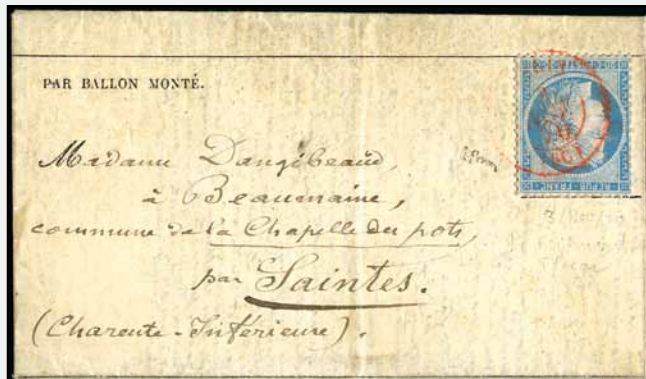 PAR BALLON MONTÉ.
Madame Dangibeaud,
à Beaumaine,
commune de la Chapelle des pots,
par Saintes.
(Charente-Inférieure).
REPUB. FRANC.